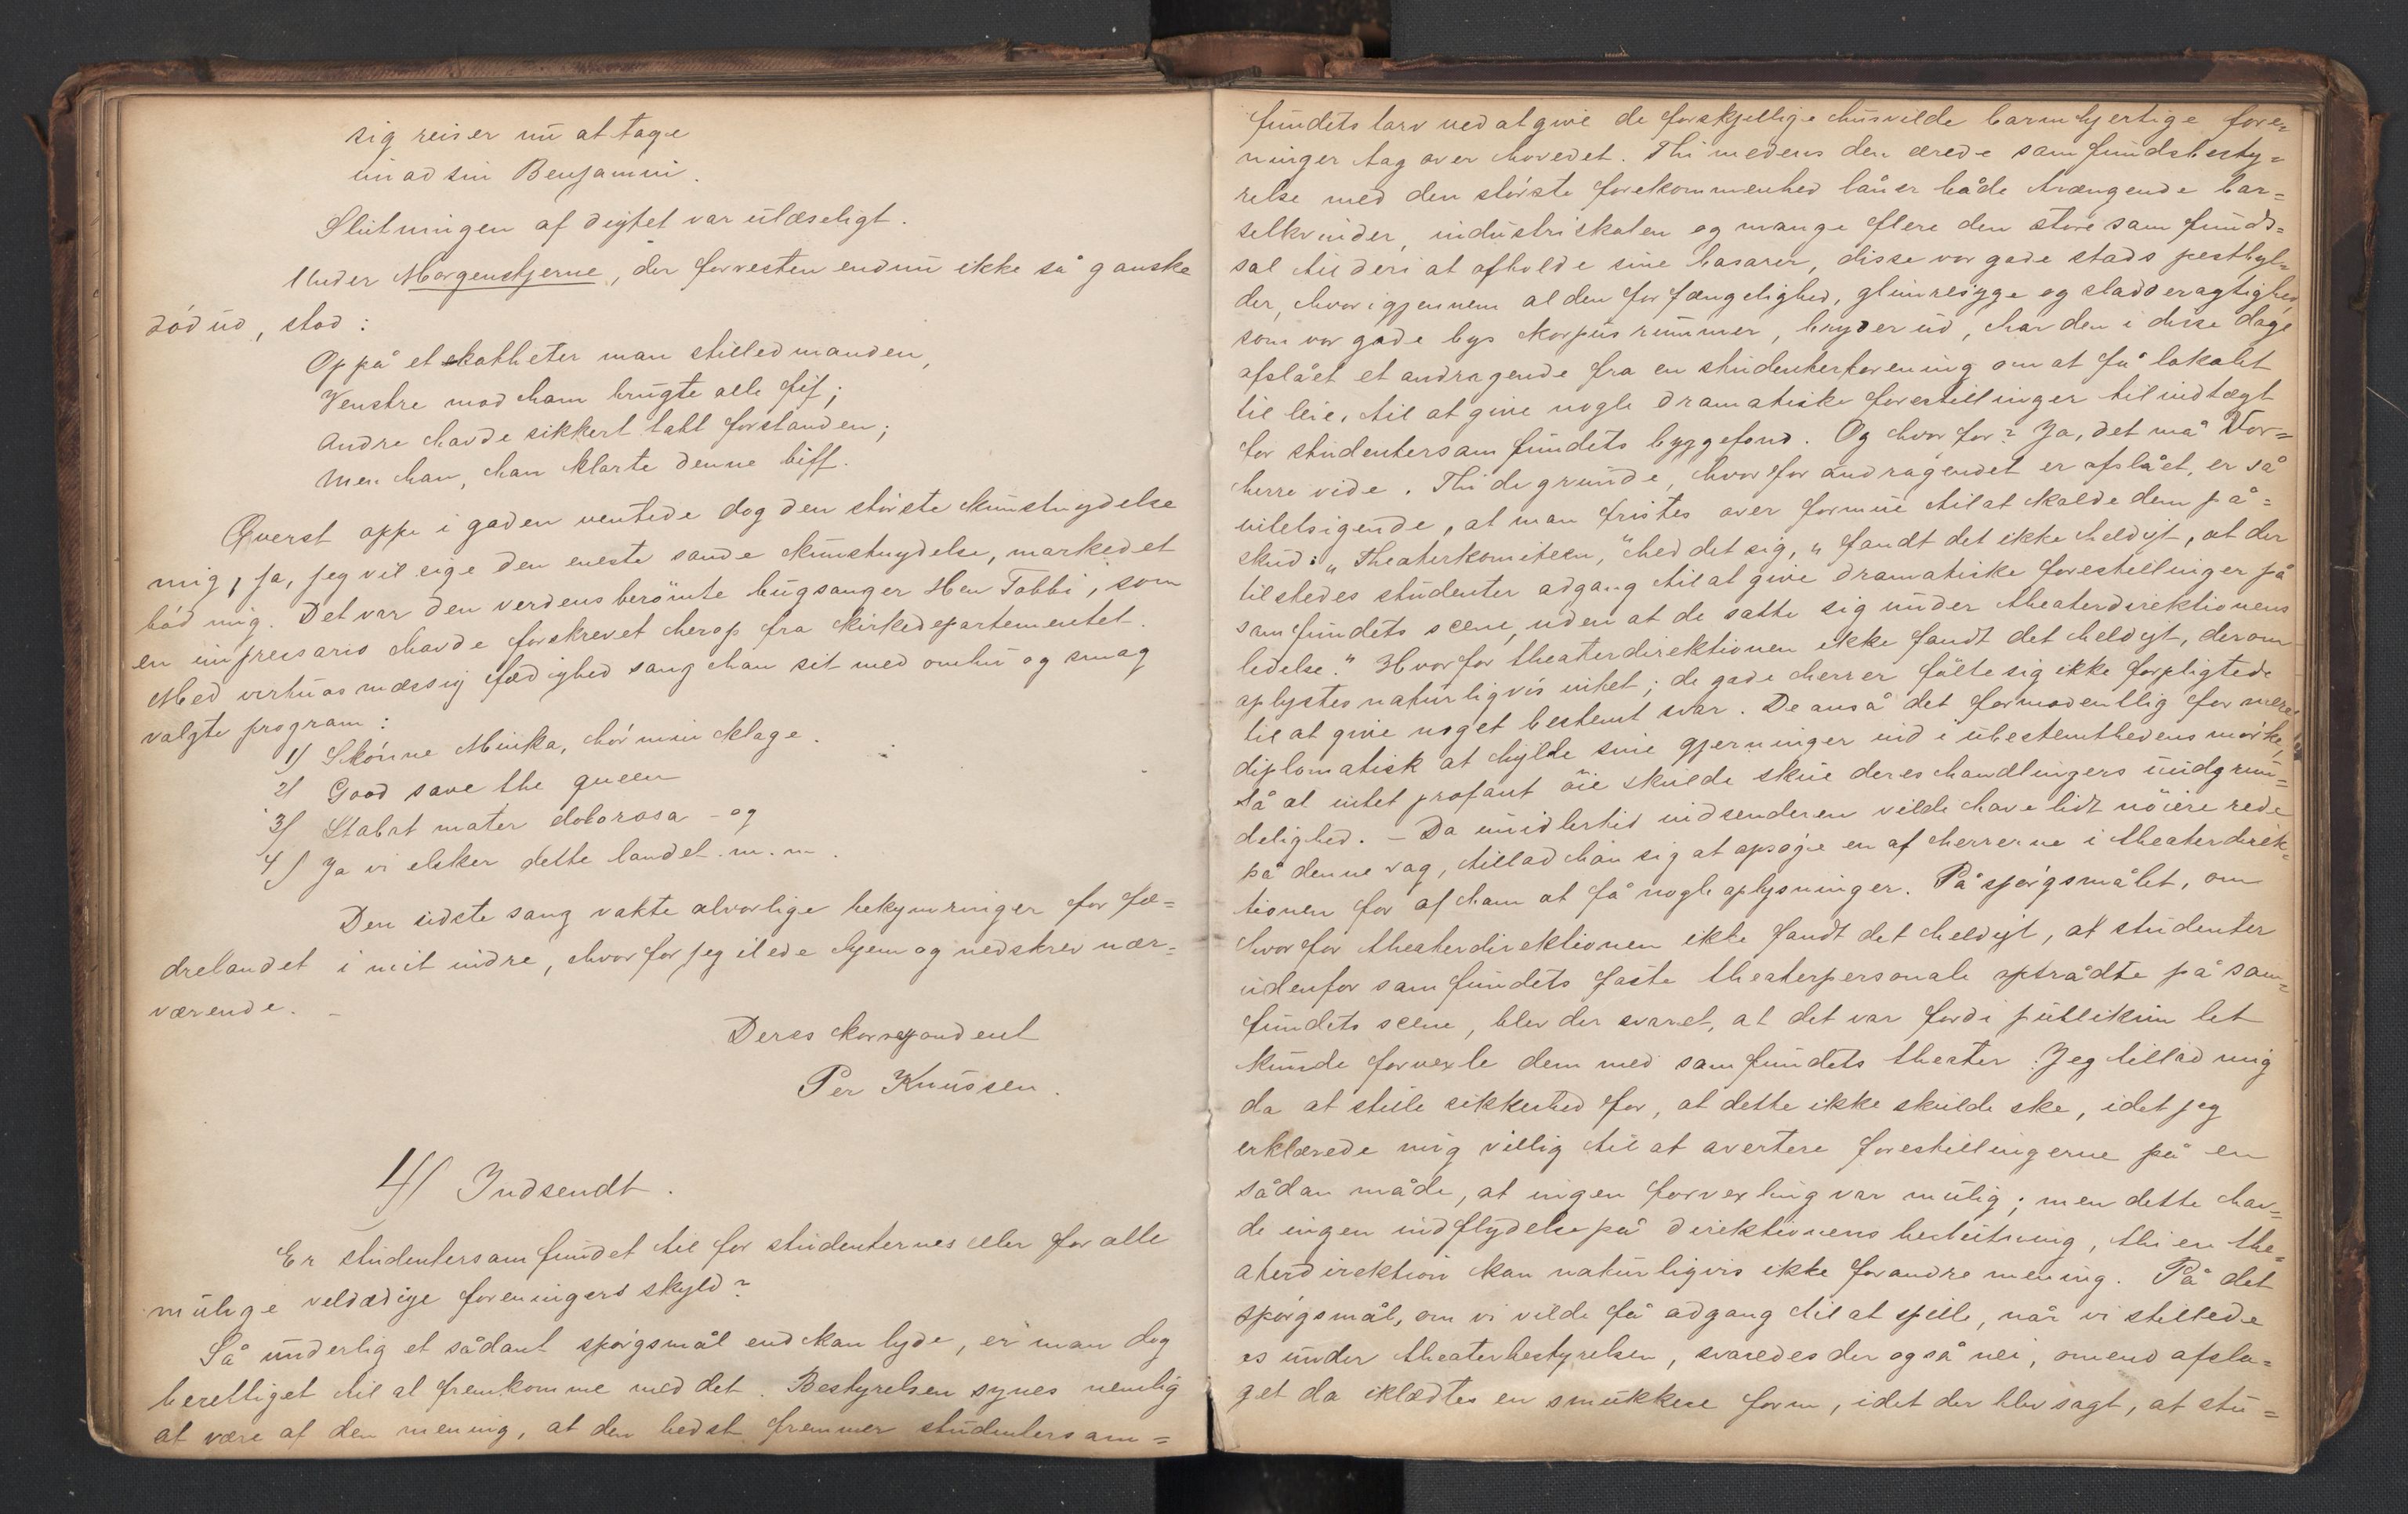 sig reiser nu at tage
imod sin Benjamin.
Slutningen af digtet var ulæseligt.
Under Morgenstjerne, der forresten endnu ikke så ganske
död ud, stod:
Op på et katheter man stilled manden,
Venstre mod ham brugte alle fif;
Andre havde sikkert tabt forstanden;
Men han, han klarte denne biff.
Øverst oppe i gaden ventede dog den störste kunstnydelse
mig, ja, jeg vil sige den eneste sande kunstnydelse, markedet
böd mig. Det var den verdensberömte bugsanger Herr Tobbi, som
en impresario havde forskrevet herop fra kirkedepartementet.
Med virtuosmæssig færdighed sang han sit med omhu og smag
valgte program:
1) Skönne Minka, hör min klage.
2) Good save the queen
3) Stabat mater dolorosa – og
4) Ja vi elsker dette landet m. m.
Den sidste sang vakte alvorlige bekymringer for fæ-
drelandet i mit indre, hvorfor jeg ilede hjem og nedskrev nær-
værende. –
Deres korrespondent
Per Knussen.
4) Indsendt.
Er studentersamfundet til for studenternes eller for alle
mulige veldædige foreningers skyld?
Så underlig et sådant spörgsmål end kan lyde, er man dog
berettiget til at fremkomme med det. Bestyrelsen synes nemlig
at være af den mening, at den bedst fremmer studentersam=
fundets tarv ved at give de forskjellige husvilde barmhjertige fore=
ninger tag over hovedet. Thi medens den ærede samfundsbesty=
relse med den störste forekommenhed låner både trængende bar=
selkvinder, industriskolen og mange flere den store samfunds=
sal til deri at afholde sine basarer, disse vor gode stads pestbyl=
der, hvorigjennem al den forfængelighed, glimresyge og sladderagtighed
som vor gode bys korpus rummer, bryder ud, har den i disse dage
afslået et andragende fra en studenterforening om at få lokalet
til leie, til at give nogle dramatiske forestillinger til indtægt
for studentersamfundets byggefond. Og hvorfor? Ja, det må Vor=
herre vide. Thi de grunde, hvorfor andragendet er afslået, er så
intetsigende, at man fristes over formue til at kalde dem på=
skud: „Theaterkomiteen," hed det sig, „fandt det ikke heldigt, at der
tilstedes studenter adgang til at give dramatiske forestillinger på
samfundets scene, uden at de satte sig under theaterdirektionens
ledelse." Hvorfor theaterdirektionen ikke fandt det heldigt, derom
oplystes naturligvis intet; de gode herrer fölte sig ikke forpligtede
til at give noget bestemt svar. De anså det formodentlig for mere
diplomatisk at hylde sine gjerninger ind i ubestemthedens mörke,
så at intet profant öie skulde skue deres handlingers uudgrun=
delighed. – Da imidlertid indsenderen vilde have lidt nöiere rede
på denne sag, tillod han sig at opsöge en af herrerne i theaterdirek=
tionen for af ham at få nogle oplysninger. På spörgsmålet, om
hvorfor theaterdirektionen ikke fandt det heldigt, at studenter
udenfor samfundets faste theaterpersonale optrådte på sam=
fundets scene, blev der svaret, at det var fordi publikum let
kunde forvexle dem med samfundets theater. Jeg tillod mig
da at stille sikkerhed for, at dette ikke skulde ske, idet jeg
erklærede mig villig til at avertere forestillingerne på en
sådan måde, at ingen forvexling var mulig; men dette hav=
de ingen indflydelse på direktionens beslutning, thi en the=
aterdirektion kan naturligvis ikke forandre mening. På det
spörgsmål, om vi vilde få adgang til at spille, når vi stillede
os under theaterbestyrelsen, svaredes der også nei, omend afsla=
get da iklædtes en smukkere form, idet der blev sagt, at stu=